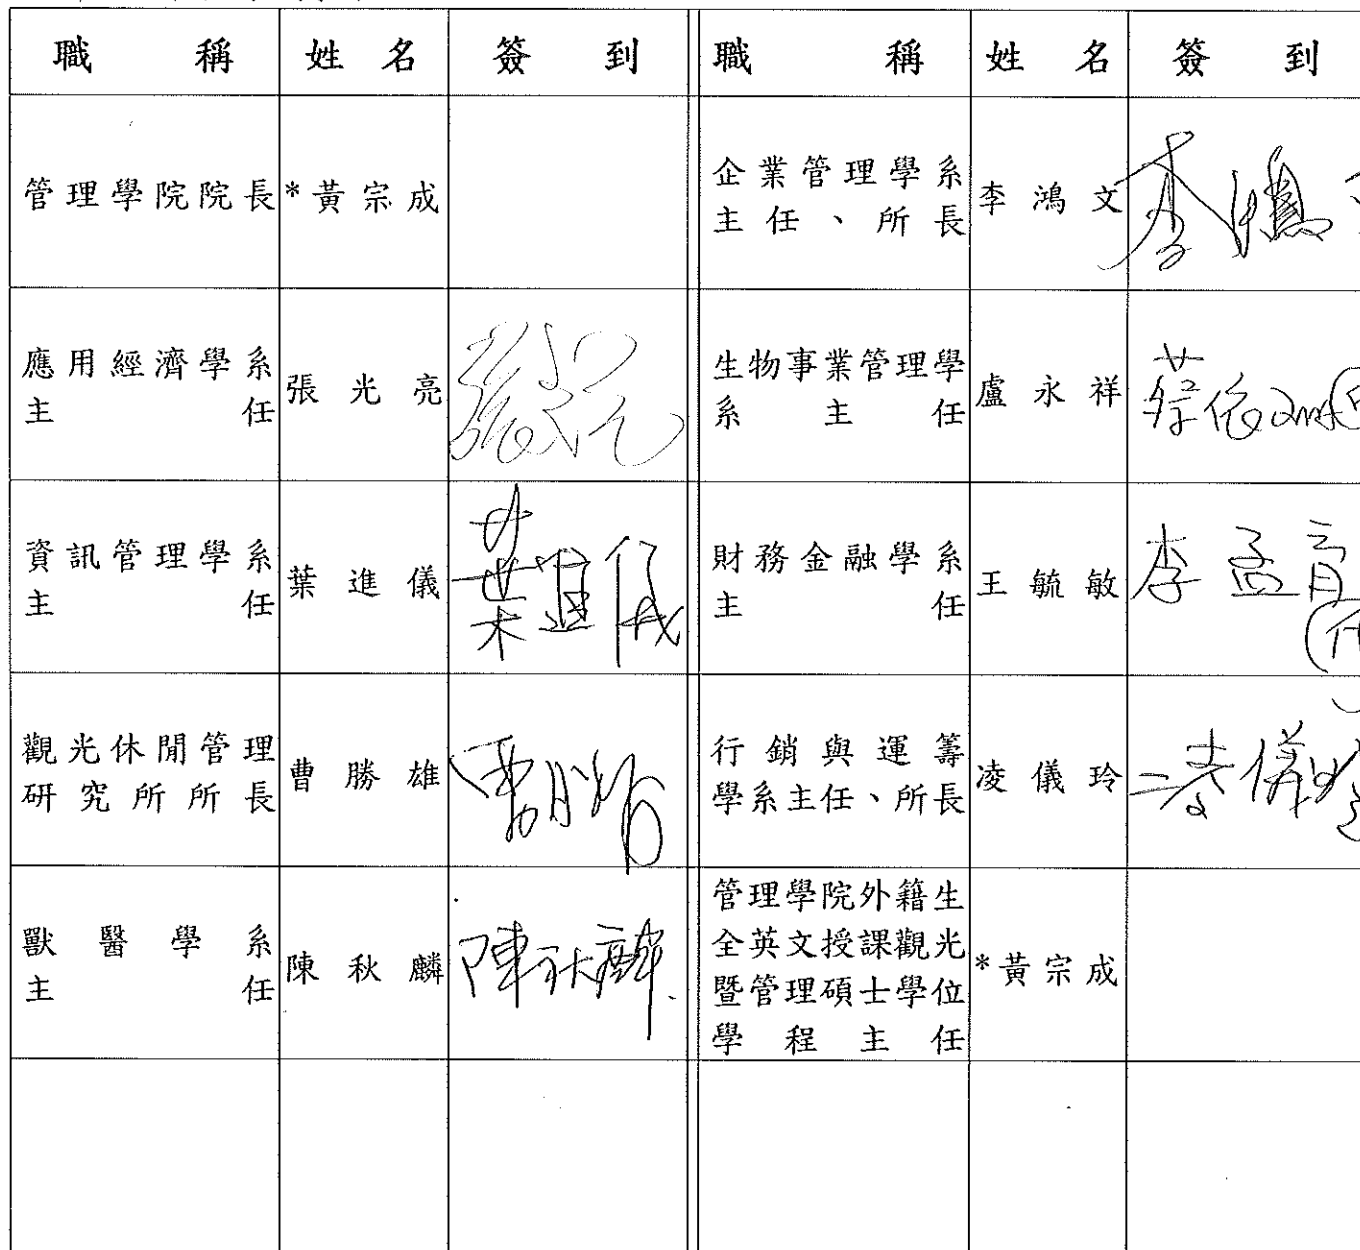 職稱 姓名 簽到 職稱 姓名 簽到
管理學院院長 *黃宗成
企業管理學系
主任、所長 李鴻文 李鴻
應用經濟學系
主任 張光亮
生物事業管理學
系主任 盧永祥
資訊管理學系
主任 葉進儀 葉進儀
財務金融學系
主任 王毓敏 李孟育
觀光休閒管理
研究所所長 曹勝雄
行銷與運籌
學系主任、所長 凌儀玲 凌儀玲
獸醫學系
主任 陳秋麟 陳秋麟
管理學院外籍生
全英文授課觀光
暨管理碩士學位
學程主任 *黃宗成